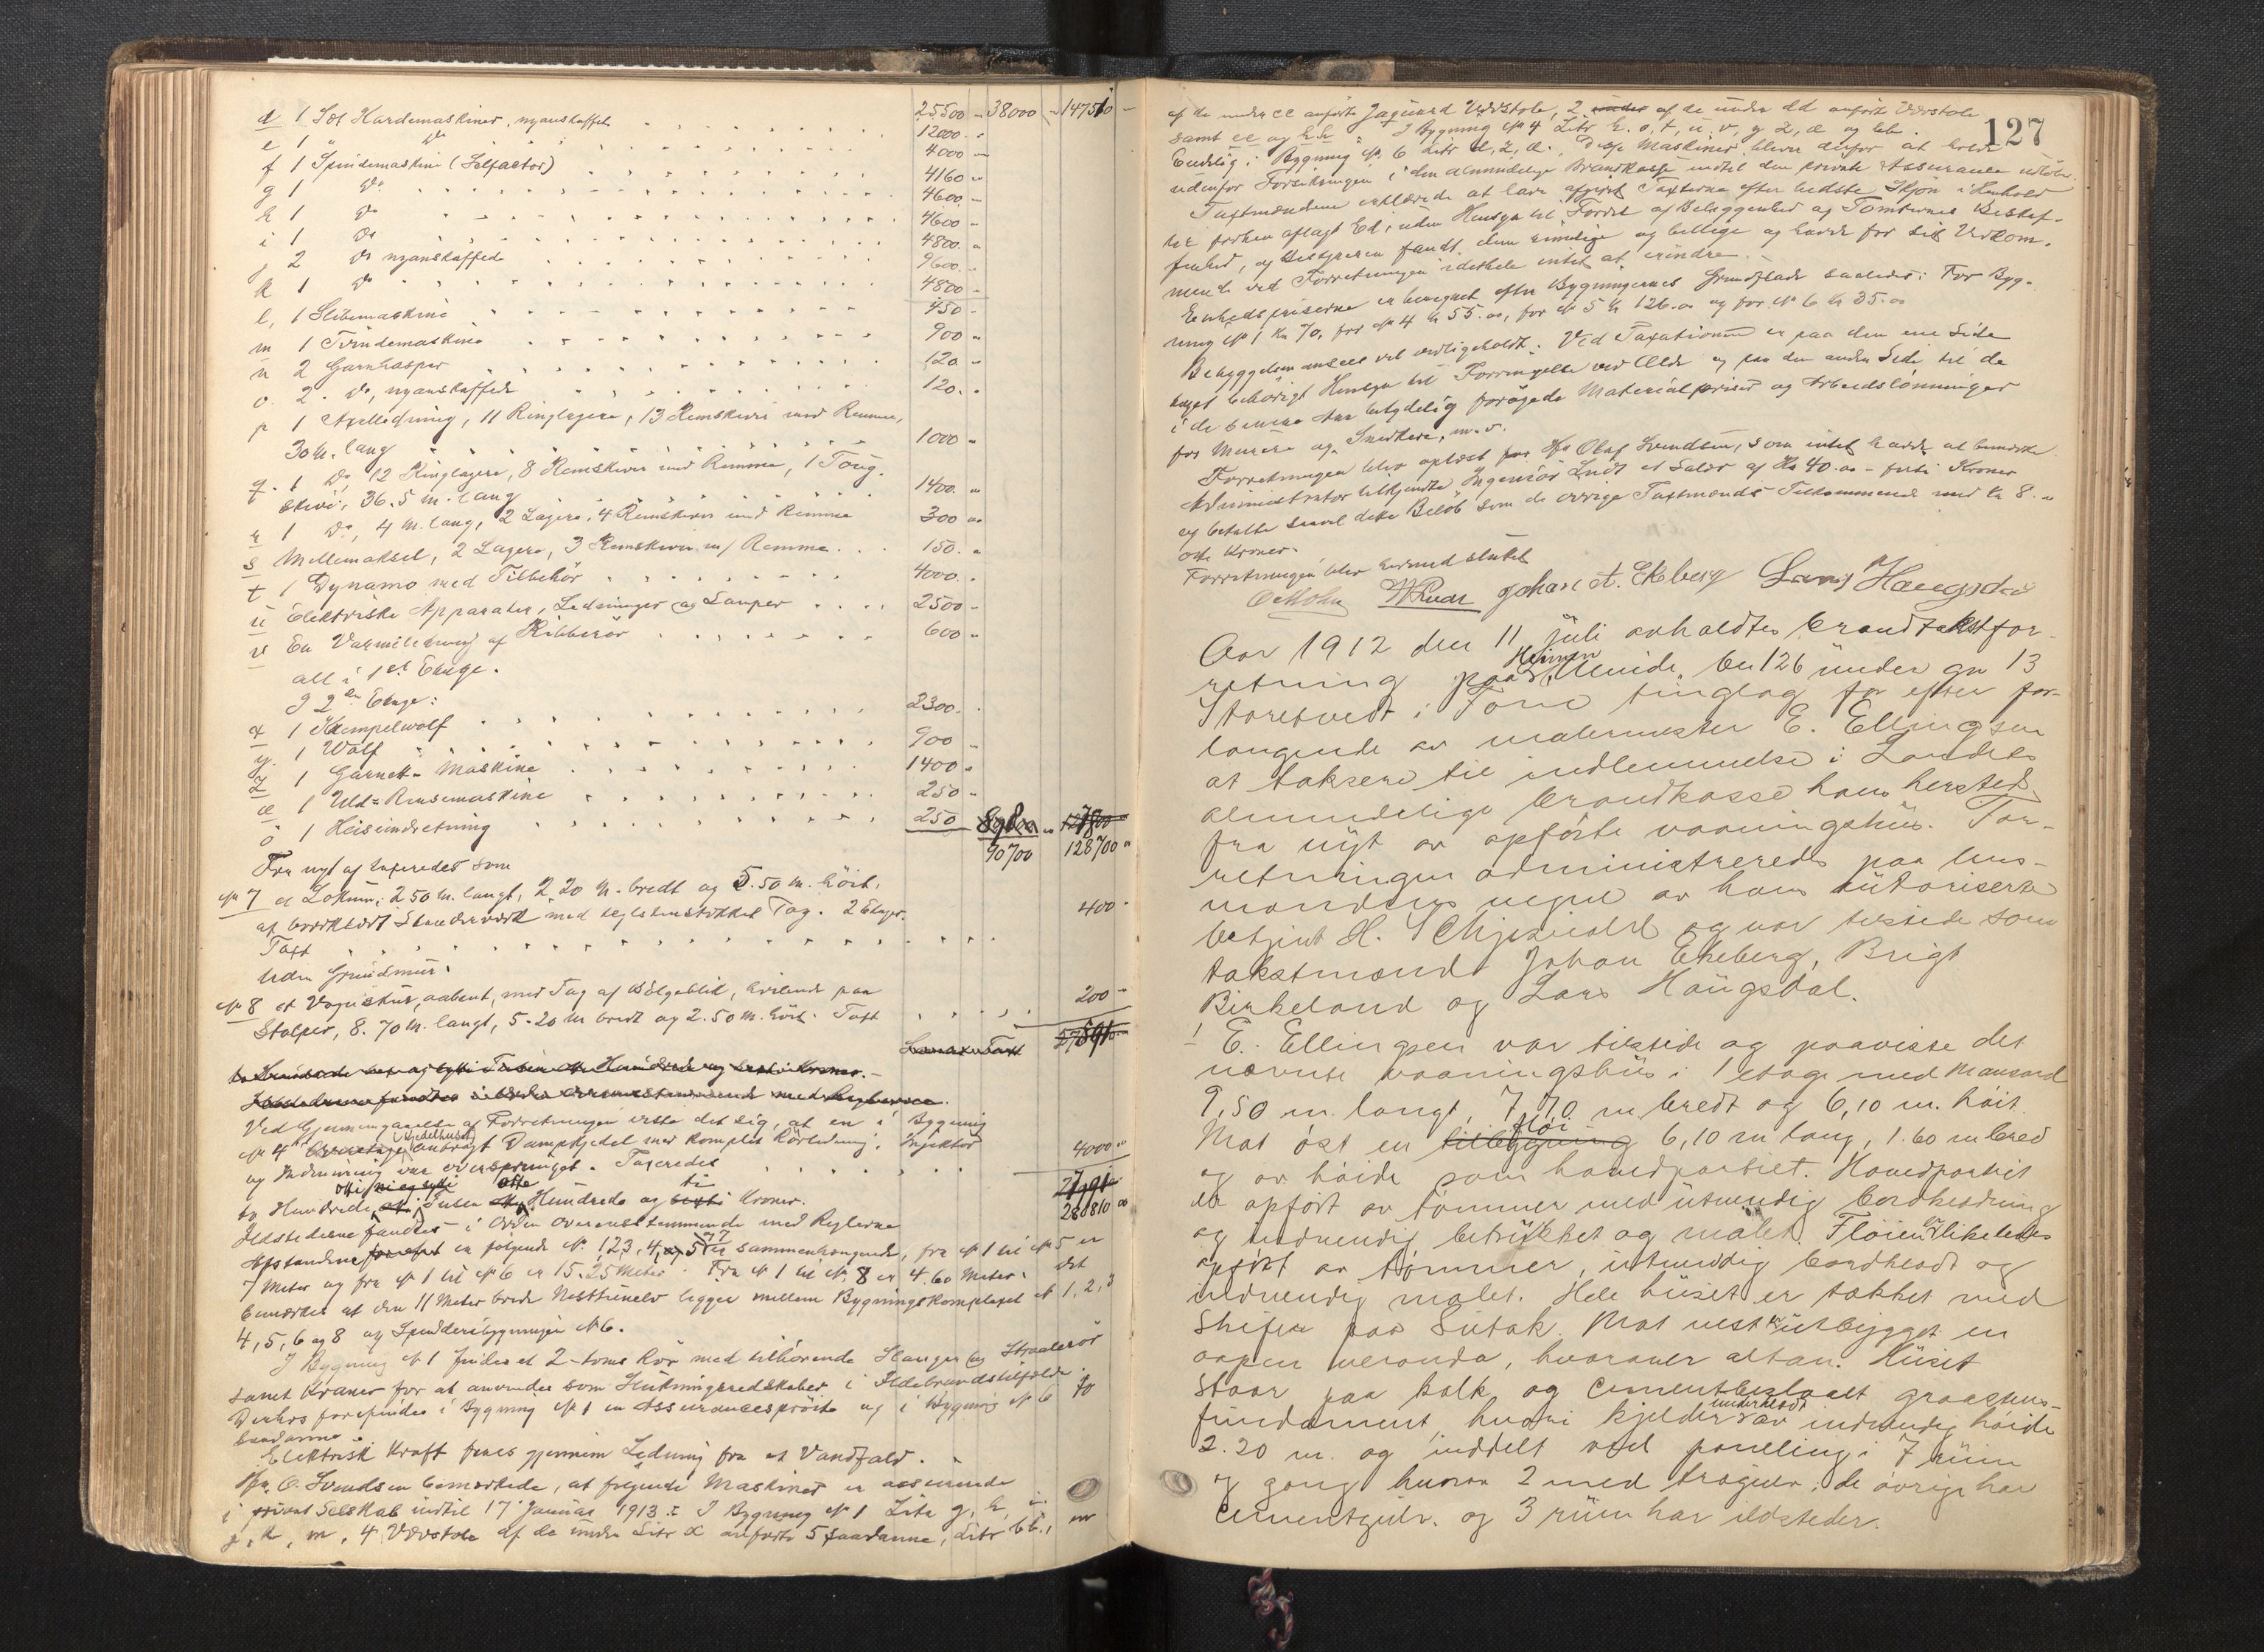 d 1 Set Kardemaskiner, nyanskaffet 25500 38000 147510
e 1 do 12000
f 1 Spindemaskine (Selfactor) 4000
g 1 do 4160
h 1 do 4600
i 1 do 4600
j 2 do nyanskaffede 4800
k 1 do 9600
l, 1 Slibemaskine 4800
m 1 Tvindemaskine 450
n 2 Garnhasper 900
o. 2 do, nyanskaffede 120
p 1 Axelledning, 11 Ringlagere, 13 Remskiver med Remme, 120
30 M. lang 1000
q. 1 do, 12 Ringlagere, 8 Remskiver med Remme, 1 Toug-
skive, 36.5 M. lang 1400
r 1 do, 4 M. lang, 2 Lagere, 4 Remskiver med Remme 300
s Mellemaksel, 2 Lagere, 3 Remskiver m/ Remme 150
t 1 Dynamo med Tilbehör 4000
u Elektriske Apparater, Ledninger og Lamper 2500
v En Varmeledning af Ribberör 600
alt i 1st Etage.
I 2den Etage:
x 1 Krempelwolf 2300
y. 1 Wolf 900
z 1 Garnett-Maskine 1400
æ 1 Uld-Rensemaskine 250
ö 1 Heiseindretning 250
90700 128700
Fra nyt af taxeredes som
No 7 et Lokum, 2.50 M. langt, 2.20 M. bredt og 5.50 M. höit,
af bordklædt Standerværk med teglstenstækket Tag. 2 Etager.
Taxt 400
Uden Grundmur.
No 8 et Vognskur, aabent, med Tag af Bölgeblik, hvilende paa
Stolper, 8.70 M. langt, 5.20 M. bredt og 2.50 M. höit. Taxt 200
Samlet Taxt
Ved Gjennemgaaelse af Forretningen viste det sig, at en i Bygning
No 4 Kjedelhuset anbragt Dampkjedel med komplet Rörledning, Injektor
og Indmuring var oversprunget. Taxeredes 4000
to Hundrede otti Tusen otte Hundrede og ti Kroner. 280810
Ildstederne fandtes i Orden overensstemmende med Reglerne
Afstandene er følgende No 1, 2, 3, 4, 5 og 7 er sammenhængende, fra No 1 til No 5 er
7 Meter og fra No 1 til No 6 er 15.25 Meter. Fra No 1 til No. 8 er 4.60 Meter. Det
bemærkes at den 11 Meter brede Nesttunelv ligger mellem Bygningskomplexet No 1, 2, 3
4, 5, 6 og 8 og Spinderibygningen No 6.
I Bygning No 1 findes et 2-toms Rör med tilhörende Slanger og Straalerör
samt Kraner for at anvendes som Slukningsredskaber i Ildebrandstilfælde.
Derhos forefindes i Bygning No 1 en Assurancesprøite og i Bygning No 6 to
saadanne.
Elektrisk Kraft faaes gjennem Ledning fra et Vandfald.
Hr. O. Svendsen bemærkede, at følgende Maskiner er assurerede
i privat Selskab indtil 17 Januar 1913: I Bygning No 1 Litr g, h, i
j, k, m, 4 Vævstole af de under Litr x anførte 5 saadanne, Litr bb.,
127
af de under cc anførte Jaquard Vævstole, 2 af de under dd anførte Vævstole
samt ee og EE. I Bygning No 4 Litr h, s, t, u, v, y, z, æ og
Endelig i Bygning No. 6 Litr x, z, æ. Disse Maskiner bliver derfor at holde
udenfor Forsikringen i den almindelige Brandkasse indtil den private Assurance udløber.
Taxtmændene erklærede at have afgivet Taxterne efter bedste Skjøn i Henhold
til forhen aflagt Ed, uden Hensyn til Fordel af Beliggenhed og Tomternes Beskaf-
fenhed, og Bestyreren fandt dem rimelige og billige og havde for sit Vedkom-
mende ved Forretningen idethele intet at erindre.
Enhedspriserne er beregnet efter Bygningernes Grundflade saaledes: For Byg-
ning No 1 Kr 70, for No 4 Kr 55.00, for No 5 Kr 126.00 og for No 6 Kr 35.00
Bebyggelsen ansees vel vedligeholdt. Ved Taxationen er paa den ene Side
taget behörigt Hensyn til Forringelse ved Ælde og paa den anden Side til de
i de senere Aar betydelig forøgede Materialpriser og Arbeidslønninger
for Murere og Snedkere, m.v.
Forretningen blev oplæst for Hr Olaf Svendsen, som intet havde at bemærke
Administrator tilkjendte Ingeniör Lindt et Salær af Kr 40.00 - forti Kroner
og betalte saavel dette Beløb som de øvrige Taxtmænds Tilkommende med Kr 8.
otte Kroner.
Forretningen blev hermed sluttet
O. Mohn Johan A. Ekeberg Lars Haugsdal
Aar 1912 den 11 juli avholdtes brandtakstfor-
retning paa "Heimen", Minde, bn 126 under gn 13
Storetvedt i Fane tinglag for efter for-
langende av malermester E. Ellingsen
at taksere til indlemmelse i Landets
almindelige brandkasse hans hersteds
fra nyt av opførte vaaningshus. For-
retningen administreredes paa lens-
mandens vegne av hans autoriserte
betjent H. Schjelderup og var tilstede som
takstmænd Johan Ekeberg, Brigt
Birkeland og Lars Haugsdal.
1 E. Ellingsen var tilstede og paaviste det
nævnte vaaningshus i 1 etage med Mansard
9,50 m. langt, 7,70 m bredt og 6,10 m. höit.
Mot öst en flöi 6,10 m lang, 1.60 m bred
og av höide som hovedpartiet. Hovedpartiet
er opført av tömmer med utvendig bordklædning
og indvendig betrukket og malet. Flöien er likeledes
opført av tömmer, utvendig bordklædt og
indvendig malet. Hele huset er tækket med
Skifer paa Sutak. Mot vest er utbygget en
aapen veranda, hvorover altan. Huset
staar paa kalk og cementbeslaaet graastens-
fundament, hvori kjelder underklædt av indvendig höide
2.20 m. og inddelt ved paneling i 7 rum
og gang hvorav 2 med trægulv; de övrige har
cementgulv. og 3 rum har ildsteder.